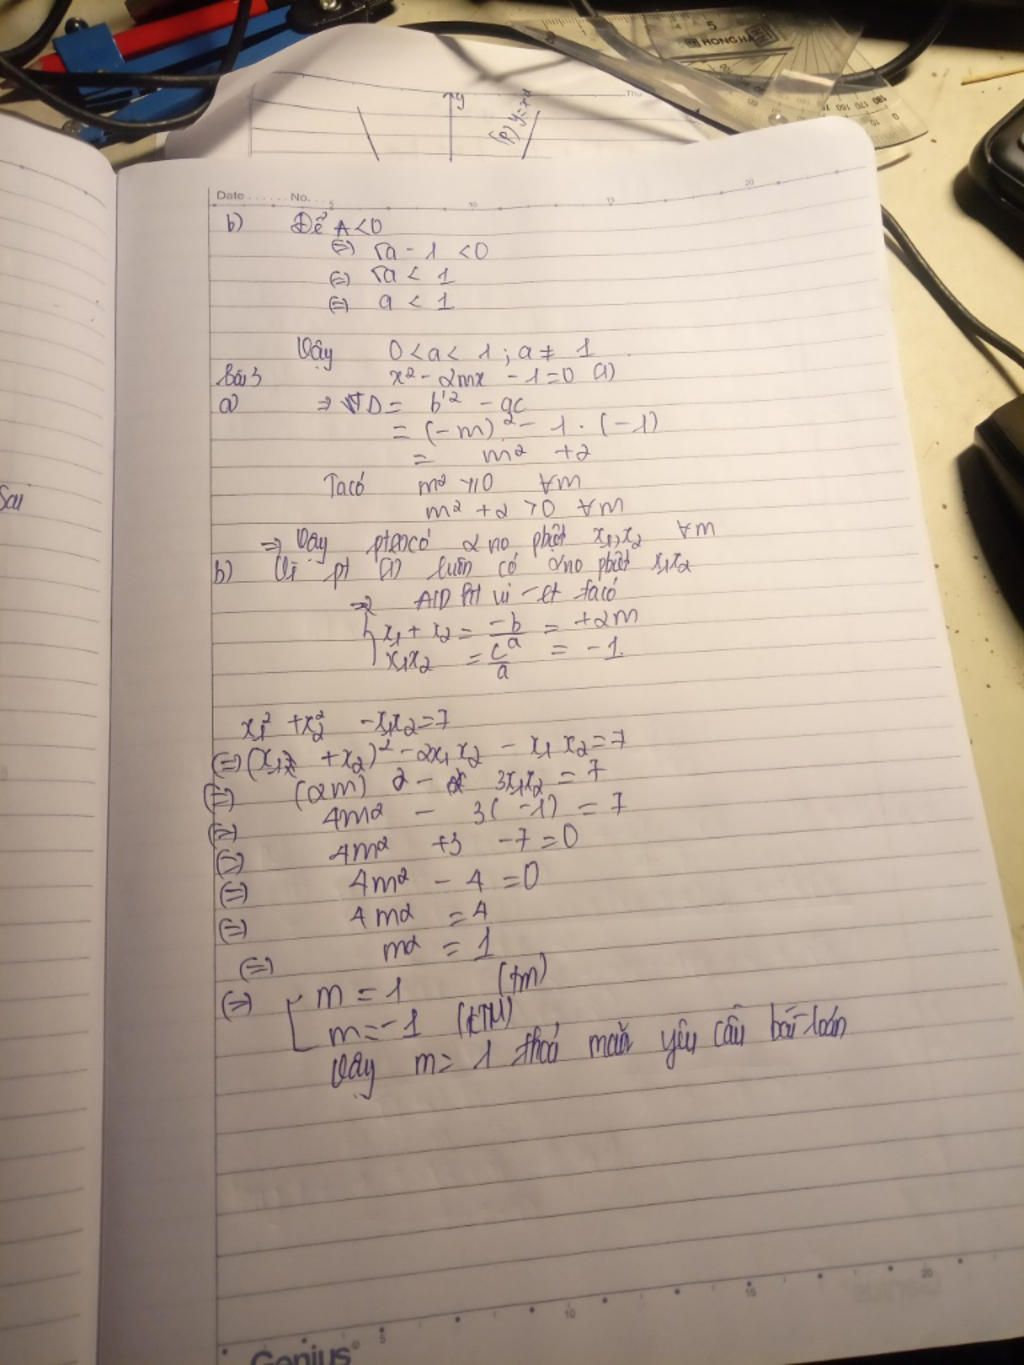 HONGHA
y
(P) y=x²
Date ...... No. ...
b) Để A<0
(=) √a - 1 <0
(=) √a < 1
(=) a < 1
Vậy 0<a< 1 ; a ≠ 1
bài 3 x² - 2mx - 1=0 (1)
a) => D = b'² - ac
= (-m)² - 1 . (-1)
= m² + 2
Ta có m² ≥ 0 ∀m
m² + 2 > 0 ∀m
=> Vậy pt có 2 no pbiệt x₁,x₂ ∀m
b) Vì pt (1) luôn có 2no pbiệt x₁x₂
=> A/D ĐL vi-ét ta có
{ x₁ + x₂ = -b/a = +2m
x₁x₂ = c/a = -1.
x₁² + x₂² - x₁x₂=7
(=) (x₁ + x₂)² - 2x₁x₂ - x₁x₂=7
(=) (2m)2 - 3x₁x₂ = 7
(=) 4m² - 3(-1) = 7
(=) 4m² +3 -7=0
(=) 4m² - 4 =0
(=) 4m² = 4
(=) m² = 1
(=) [ m = 1 (tm)
m=-1 (KTM)
Vậy m= 1 thoả mãn yêu cầu bài toán
Sai
Genius